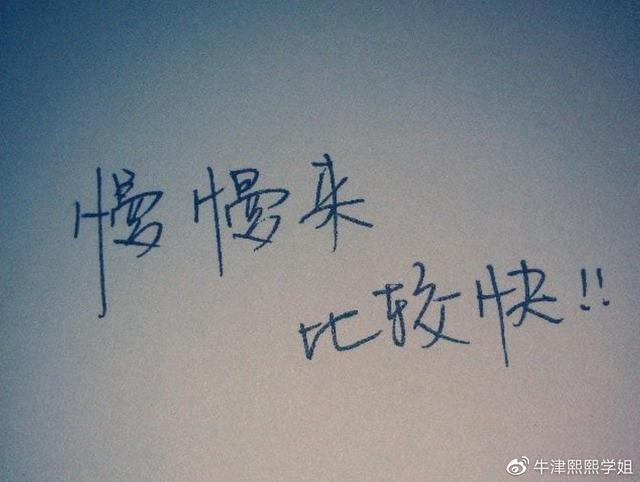 慢慢来
比较快!!
牛津熙熙学姐